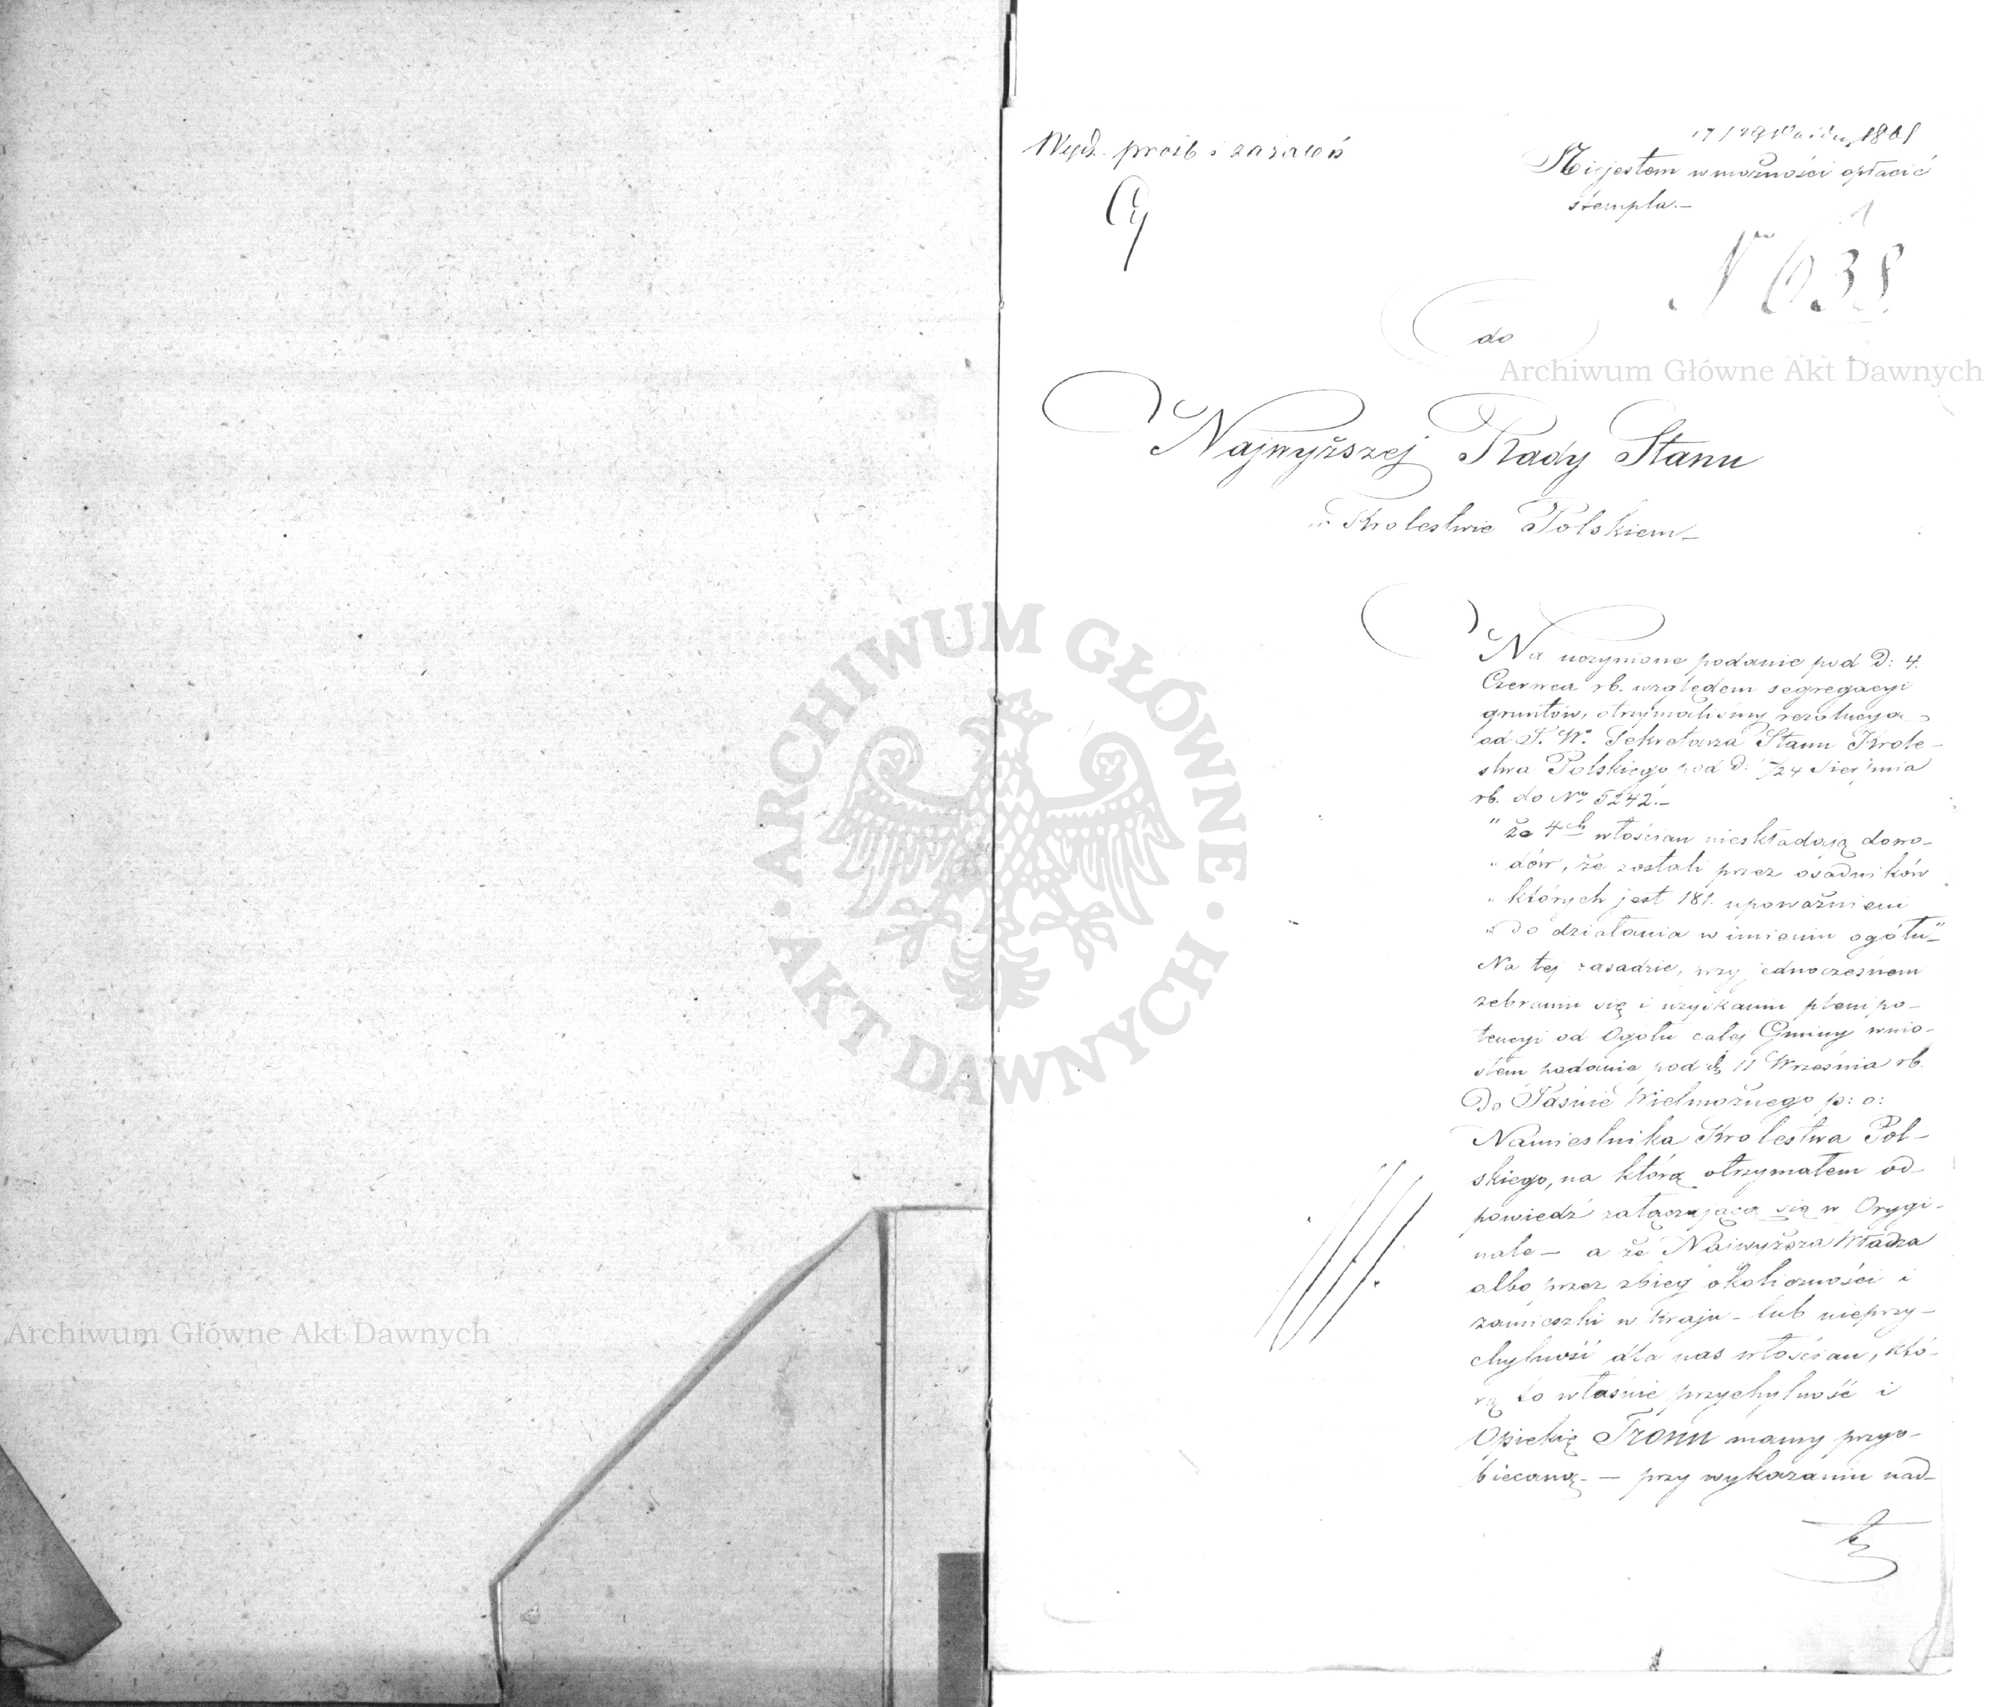 Wydz. próśb i zażaleń
17/29 Paźdz. 1861
Niejestem w możności opłacić
stempla.—
1
N 638
do
Archiwum Główne Akt Dawnych
Najwyższej Rady Stanu
w Krolestwie Polskiem—
ARCHIWUM GŁÓWNE AKT DAWNYCH
Na uczynione podanie pod D: 4.
Czerwca rb. względem segregacyi
gruntów, otrzymaliśmy rezolucyą
od J. W. Sekretarza Stanu Krole-
stwa Polskiego pod D. /24 Sierpnia
rb. do No 5242.—
" że 4ch włościan nieskładają dowo-
" dów, że zostali przez osadników
" których jest 181. upoważnieni
" do działania w imieniu ogółu"—
Na tej zasadzie, przy jednoczesnem
zebraniu się i uzyskaniu plenipo-
tencyi od Ogołu całej Gminy wnio-
słem podanie pod d. 11 Września rb.
do Jaśnie Wielmożnego p: o:
Namiestnika Krolestwa Pol-
skiego, na którą otrzymałem od-
powiedź załączającą się w Orygi-
nale— a że Najwyższa Władza
albo przez zbieg okoliczności i
zamieszki w kraju— lub nieprzy-
chylność dla nas włościan, któ-
rą to właśnie przychylność i
Opiekię Tronu mamy przyo-
biecaną.— przy wykazaniu nad-
Archiwum Główne Akt Dawnych